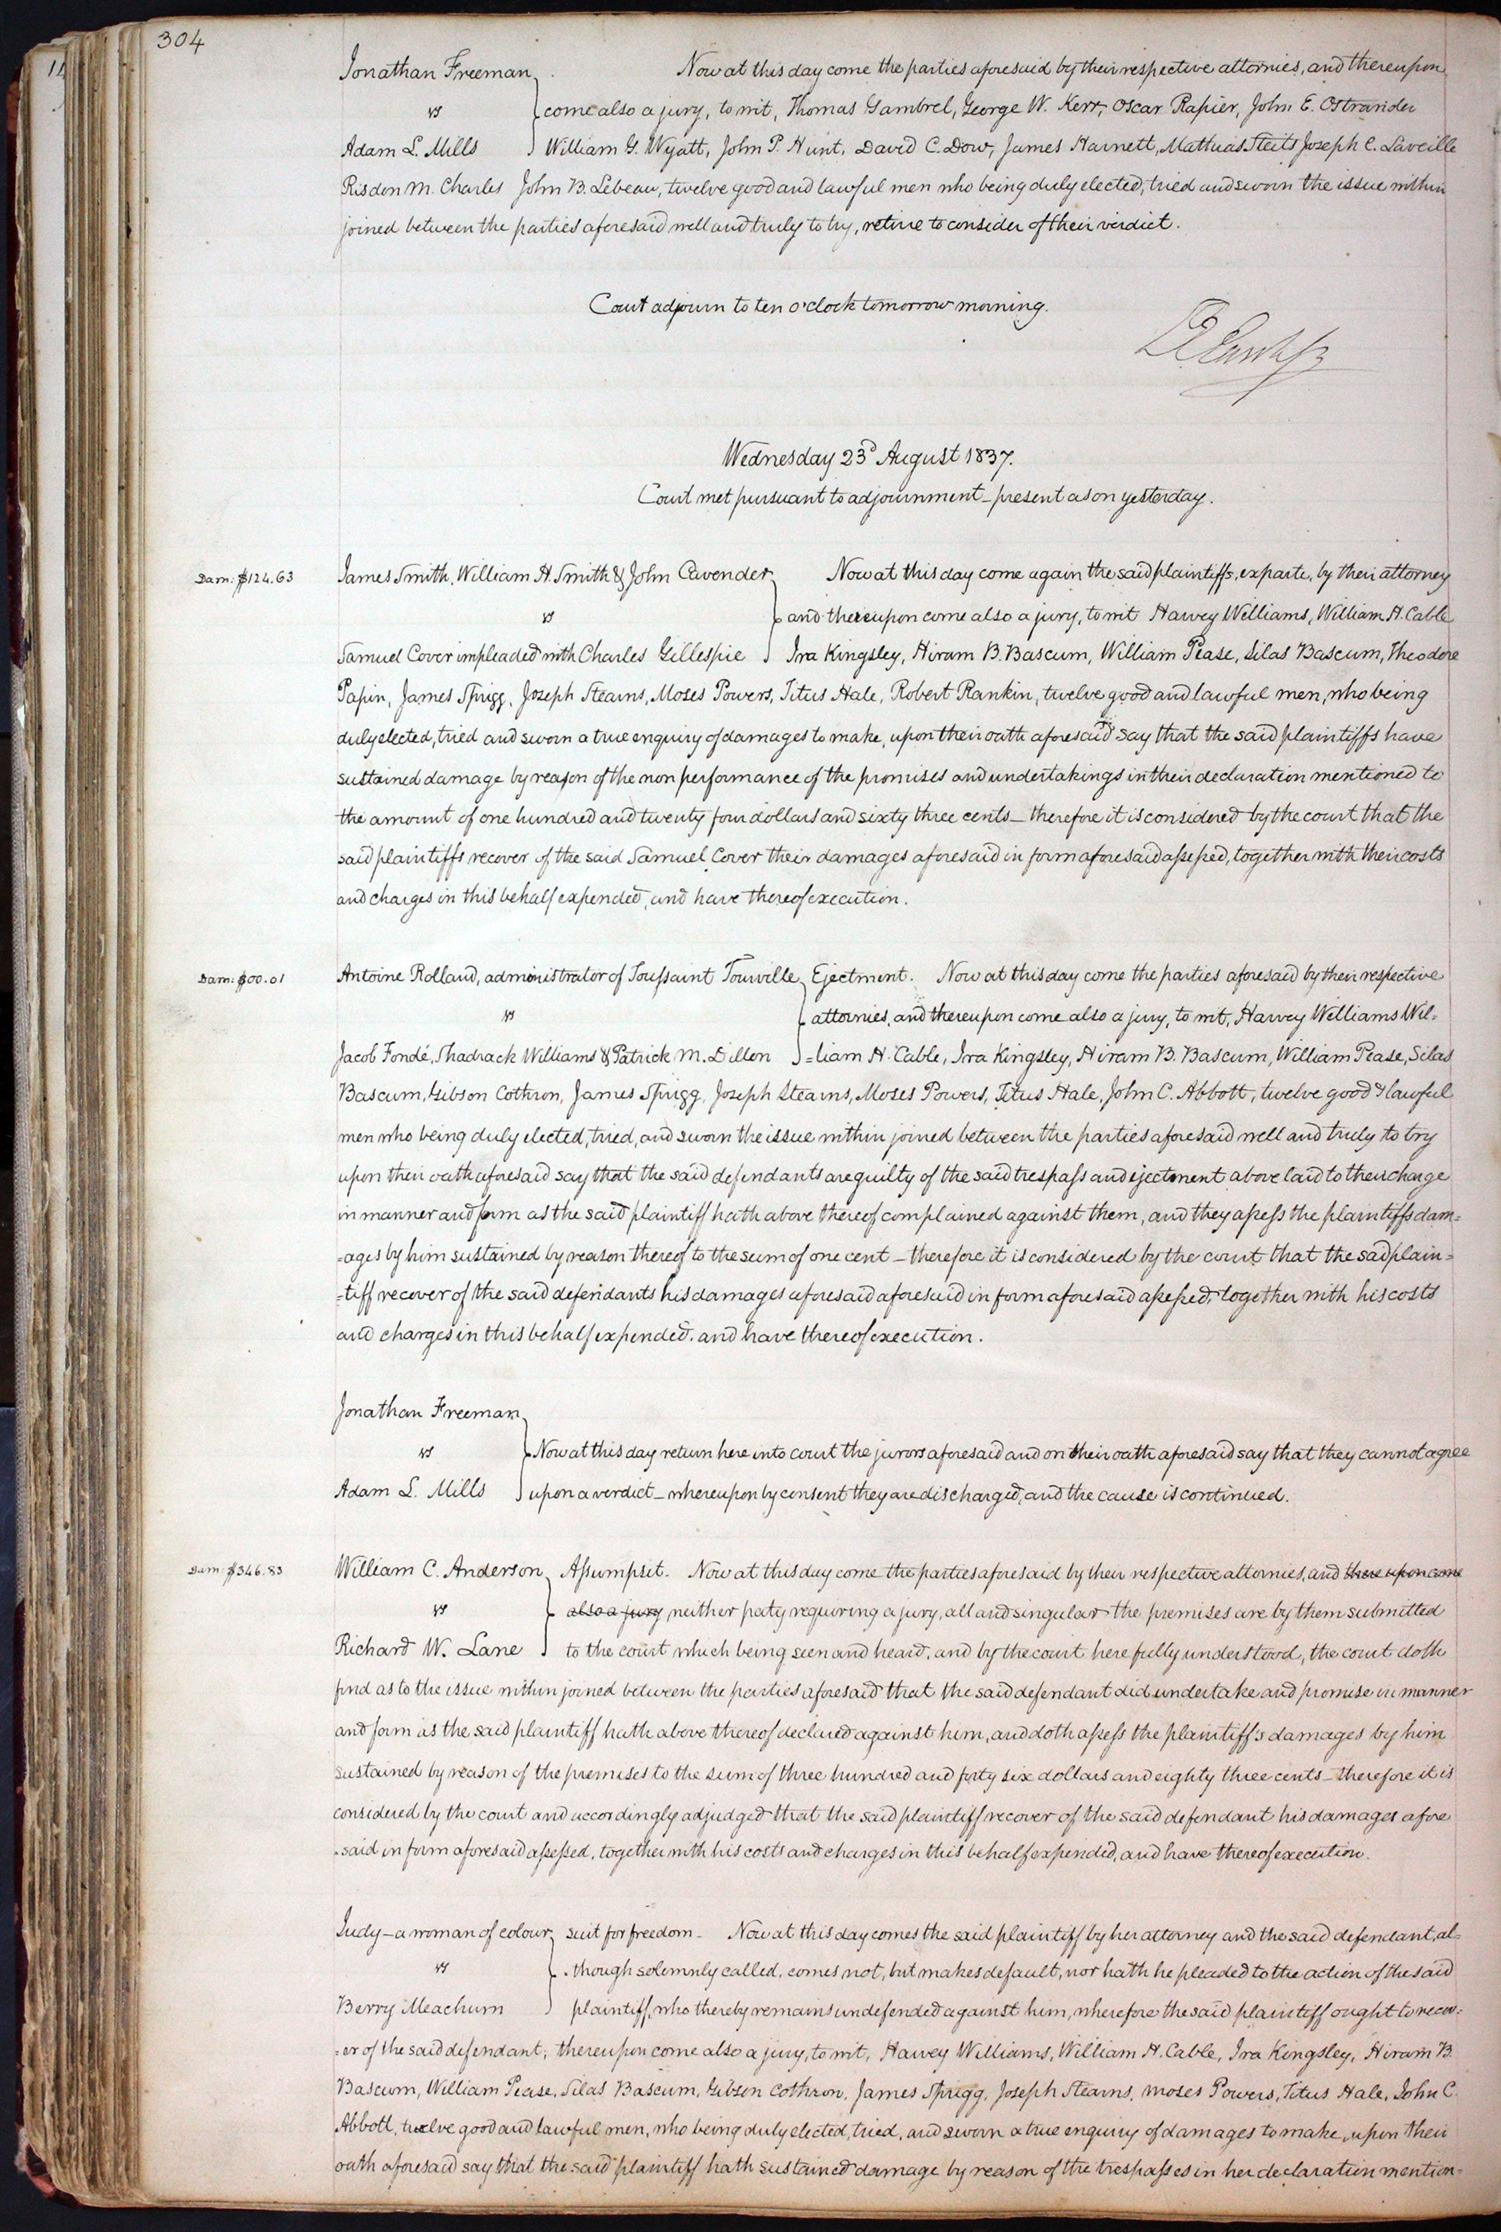 304
11
Jonathan Freeman
vs
Adam L. Mills
Now at this day come the parties aforesaid by their respective attornies, and thereupon
come also a jury, to wit, Thomas Gambrel, George W. Kerr, Oscar Rapier, John E. Ostrander
William G. Wyatt, John P. Hunt, David C. Dow, James Harnett, Mathias Steits Joseph C. Laveille
Risdon M. Charles John B. Lebeau, twelve good and lawful men who being duly elected, tried and sworn the issue within
joined between the parties aforesaid well and truly to try, retire to consider of their verdict.
Court adjourn to ten o'clock tomorrow morning.
Wednesday 23d August 1837.
Court met pursuant to adjournment - present as on yesterday.
Dam: $124.63
James Smith, William H. Smith & John Cavender
vs
Samuel Cover impleaded with Charles Gillespie
Now at this day come again the said plaintiffs, exparte, by their attorney
and thereupon come also a jury, to wit Harvey Williams, William H. Cable
Ira Kingsley, Hiram B. Bascum, William Pease, Silas Bascum, Theodore
Papin, James Sprigg, Joseph Stearns, Moses Powers, Titus Hale, Robert Rankin, twelve good and lawful men, who being
duly elected, tried and sworn a true enquiry of damages to make, upon their oath aforesaid say that the said plaintiffs have
sustained damage by reason of the non performance of the promises and undertakings in their declaration mentioned to
the amount of one hundred and twenty four dollars and sixty three cents - therefore it is considered by the court that the
said plaintiffs recover of the said Samuel Cover their damages aforesaid in form aforesaid assessed, together with their costs
and charges in this behalf expended, and have thereof execution.
Dam: $00.01
Antoine Rolland, administrator of Toussaint Tourville
vs
Jacob Fondé, Shadrack Williams & Patrick M. Dillon
Ejectment. Now at this day come the parties aforesaid by their respective
attornies, and thereupon come also a jury, to wit, Harvey Williams Wil=
=liam H. Cable, Ira Kingsley, Hiram B. Bascum, William Pease, Silas
Bascum, Gibson Cothron, James Sprigg, Joseph Stearns, Moses Powers, Titus Hale, John C. Abbott, twelve good & lawful
men who being duly elected, tried, and sworn the issue within joined between the parties aforesaid well and truly to try
upon their oath aforesaid say that the said defendants are guilty of the said trespass and ejectment above laid to their charge
in manner and form as the said plaintiff hath above thereof complained against them, and they assess the plaintiffs dam=
=ages by him sustained by reason thereof to the sum of one cent - therefore it is considered by the court that the said plain=
=tiff recover of the said defendants his damages aforesaid aforesaid in form aforesaid assessed, together with his costs
and charges in this behalf expended, and have thereof execution.
Jonathan Freeman
vs
Adam L. Mills
Now at this day return here into court the jurors aforesaid and on their oath aforesaid say that they cannot agree
upon a verdict - whereupon by consent they are discharged, and the cause is continued.
Dam: $346.83
William C. Anderson
vs
Richard W. Lane
Assumpsit. Now at this day come the parties aforesaid by their respective attornies, and there upon come
also a jury neither party requiring a jury, all and singular the premises are by them submitted
to the court which being seen and heard, and by the court here fully understood, the court doth
find as to the issue within joined between the parties aforesaid that the said defendant did undertake and promise in manner
and form as the said plaintiff hath above thereof declared against him, and doth assess the plaintiff's damages by him
sustained by reason of the premises to the sum of three hundred and forty six dollars and eighty three cents - therefore it is
considered by the court and accordingly adjudged that the said plaintiff recover of the said defendant his damages afore
said in form aforesaid assessed, together with his costs and charges in this behalf expended, and have thereof execution.
Judy - a woman of colour
vs
Berry Meachum
suit for freedom - Now at this day comes the said plaintiff by her attorney and the said defendant, al=
though solemnly called, comes not, but makes default, nor hath he pleaded to the action of the said
plaintiff, who thereby remains undefended against him, wherefore the said plaintiff ought to recov=
=er of the said defendant; thereupon come also a jury, to wit, Harvey Williams, William H. Cable, Ira Kingsley, Hiram B.
Bascum, William Pease, Silas Bascum, Gibson Cothron, James Sprigg, Joseph Stearns, Moses Powers, Titus Hale, John C.
Abbott, twelve good and lawful men, who being duly elected, tried, and sworn a true enquiry of damages to make, upon their
oath aforesaid say that the said plaintiff hath sustained damage by reason of the trespasses in her declaration mention=